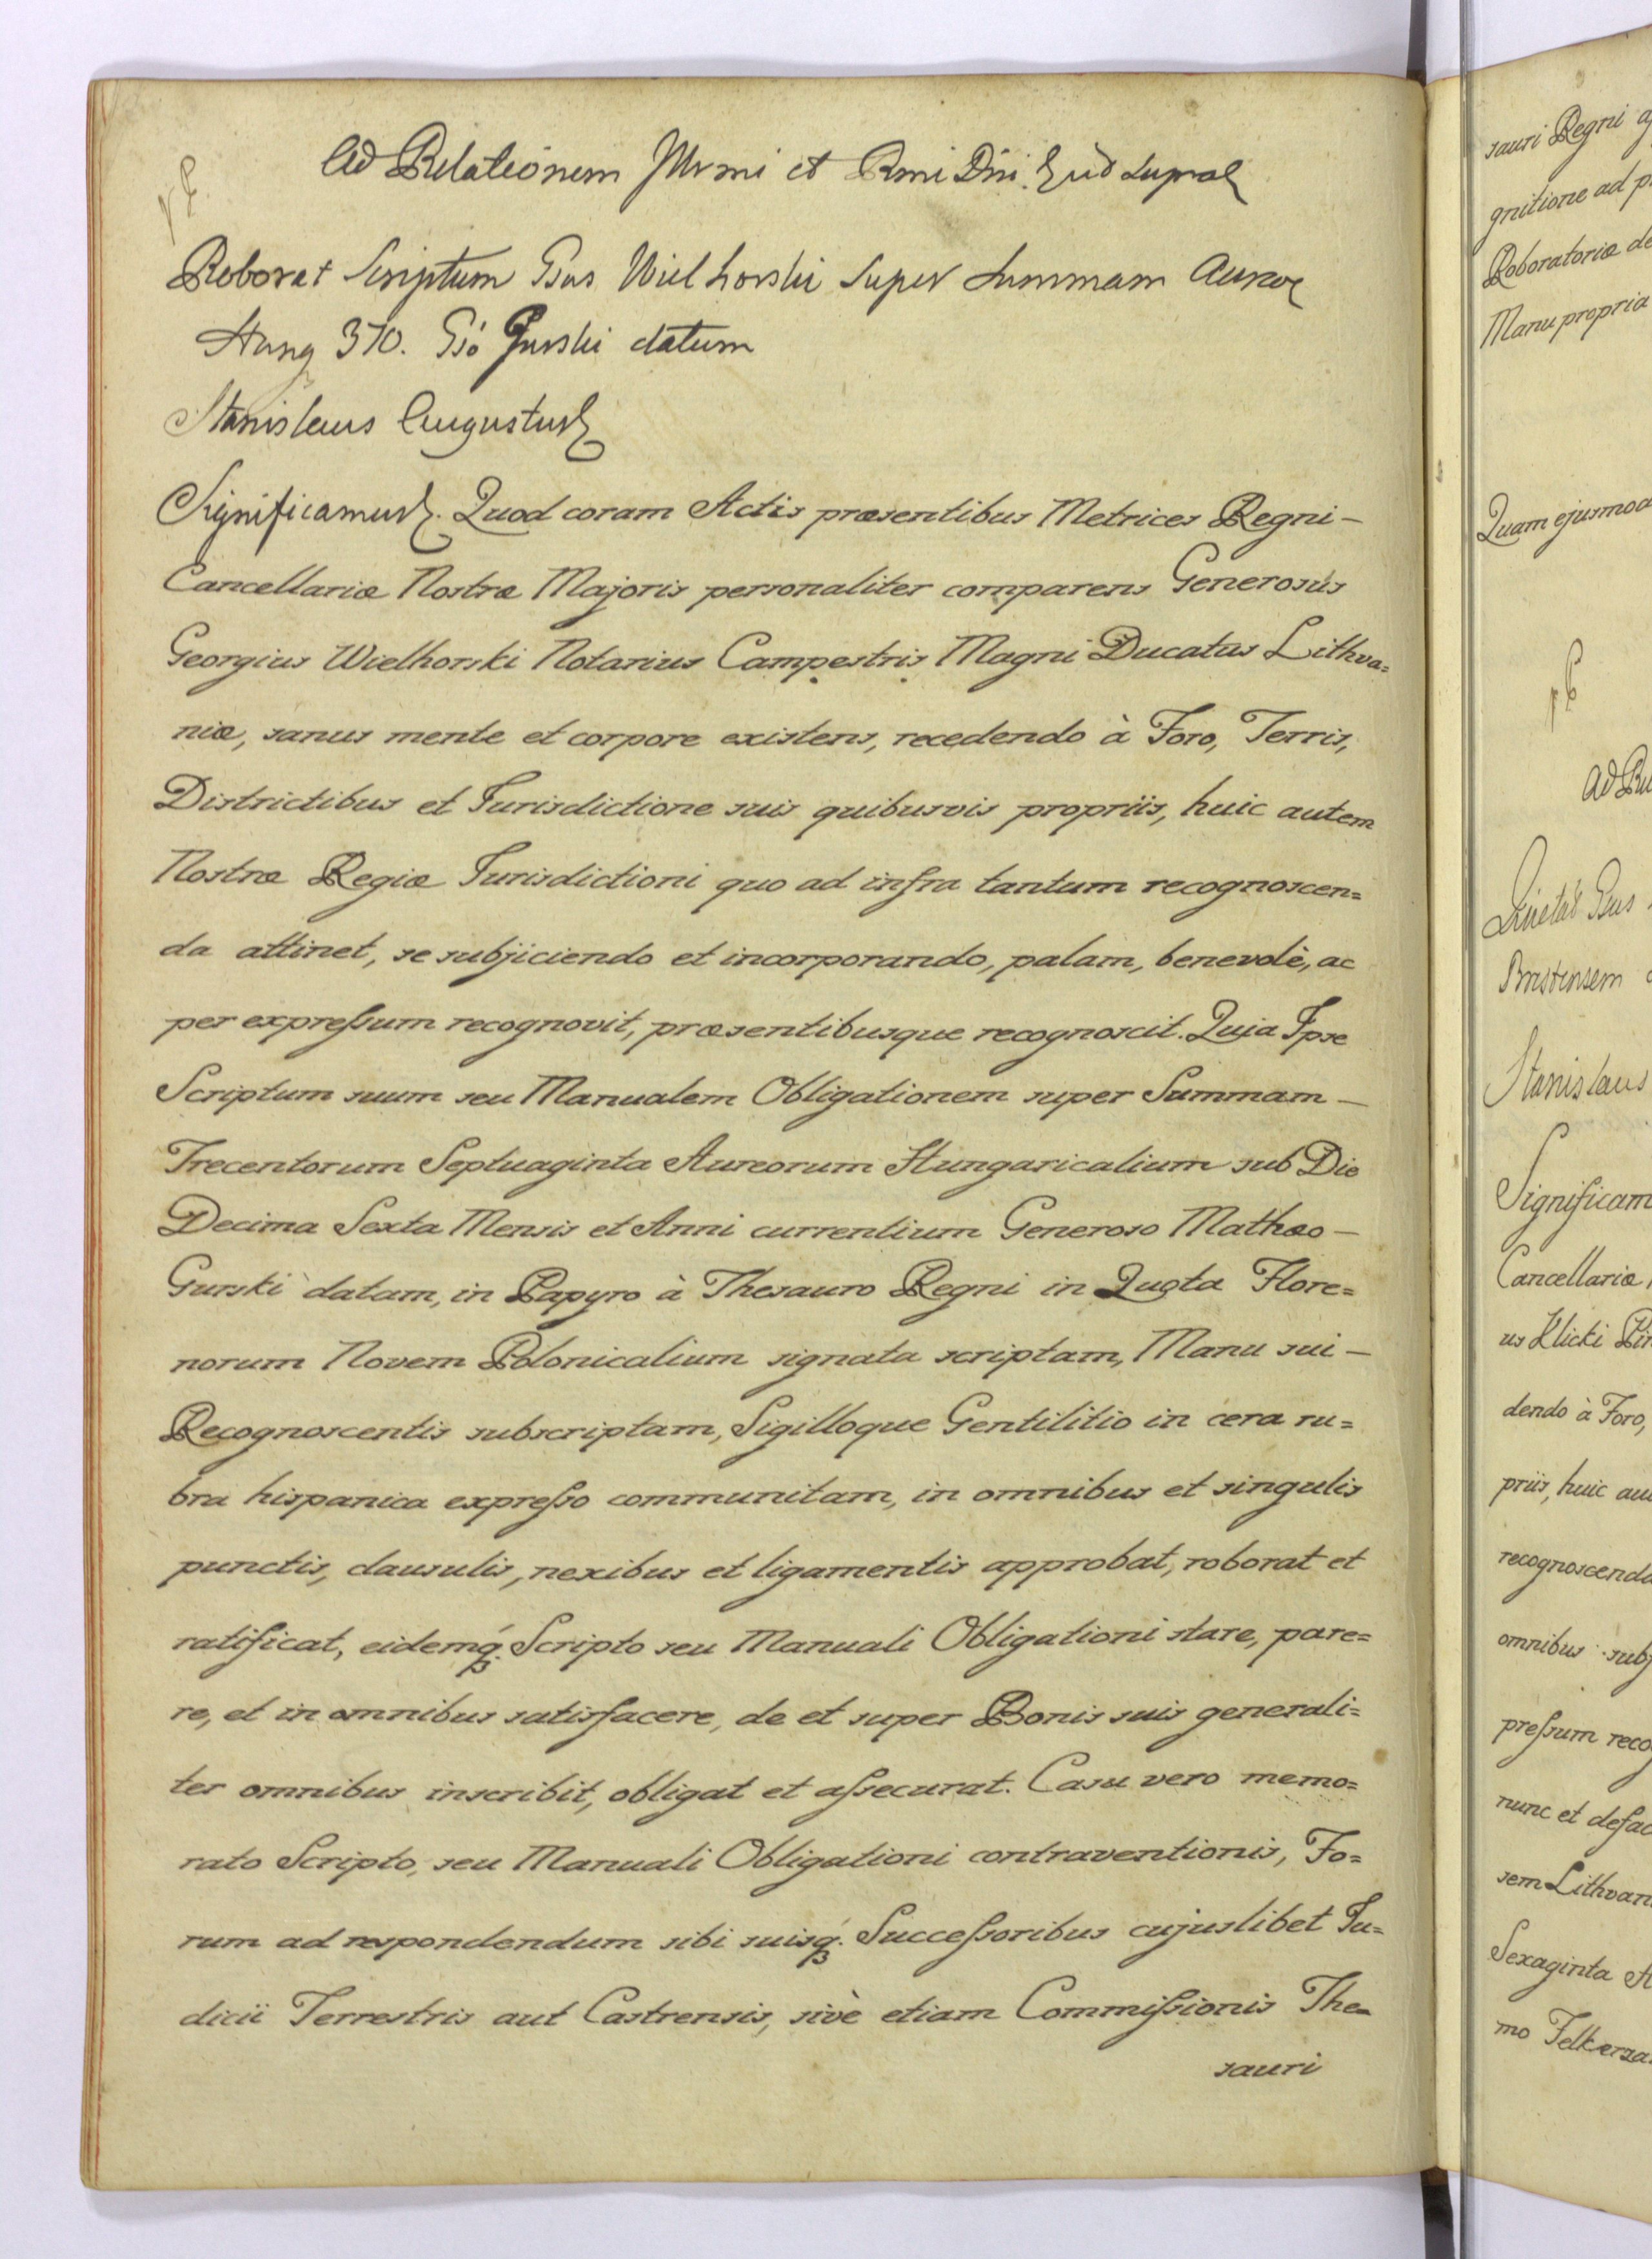 Ad Relationem Illrmi et Rmi Dni
Roborat Scriptum Gsus Wielhorski super Summam Aureor
Hung 370. Gso Gurski datum
Stanislaus Augustus
Significamus. Quod coram Actis præsentibus Metrices Regni –
Cancellariæ Nostræ Majoris personaliter comparens Generosus
Georgius Wielhorski Notarius Campestris Magni Ducatus Lithva=
niæ, sanus mente et corpore existens, recedendo à Foro, Terris,
Districtibus et Jurisdictione suis quibusvis propriis, huic autem
Nostræ Regiæ Jurisdictioni quo ad infra tantum recognoscen=
da attinet, se subjiciendo et incorporando, palam, benevolè, ac
per expreſsum recognovit, præsentibusque recognoscit. Quia Ipse
Scriptum suum seu Manualem Obligationem super Summam –
Trecentorum Septuaginta Aureorum Hungaricalium sub Die
Decima Sexta Mensis et Anni currentium Generoso Mathæo –
Gurski datam, in Papyro à Thesauro Regni in Quota Flore=
norum Novem Polonicalium signata scriptam, Manu sui –
Recognoscentis subscriptam, Sigilloque Gentilitio in cera ru=
bra hispanica expreſso communitam, in omnibus et singulis
punctis, clausulis, nexibus et ligamentis approbat, roborat et
ratificat, eidemq́. Scripto seu Manuali Obligationi stare, pare=
re, et in omnibus satisfacere, de et super Bonis suis generali=
ter omnibus inscribit, obligat et aſsecurat. Casu vero memo=
rato Scripto, seu Manuali Obligationi contraventionis, Fo=
rum ad respondendum sibi suisq́. Succeſsoribus cujuslibet Ju=
dicii Terrestris aut Castrensis, sivè etiam Commiſsionis The=
sauri
sauri Regni
gnitione ad
Roboratoriæ de
Manu propria
Quam ejusmod
Ad
Quietat Gsus
Brestensem
Stanislaus
Significam
Cancellariæ
us Klicki
dendo à Foro,
priis, huic au
recognoscenda
omnibus subj
preſsum reco
nunc et defac
sem Lithvan
Sexaginta
mo Felkerza